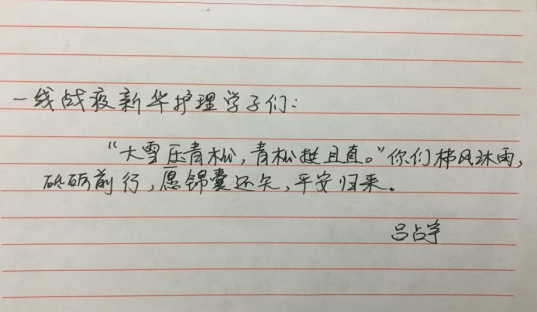 一线战疫新华护理学子们：
"大雪压青松，青松挺且直。"你们栉风沐雨，
砥砺前行，愿锦囊还矢，平安归来。
吕占争